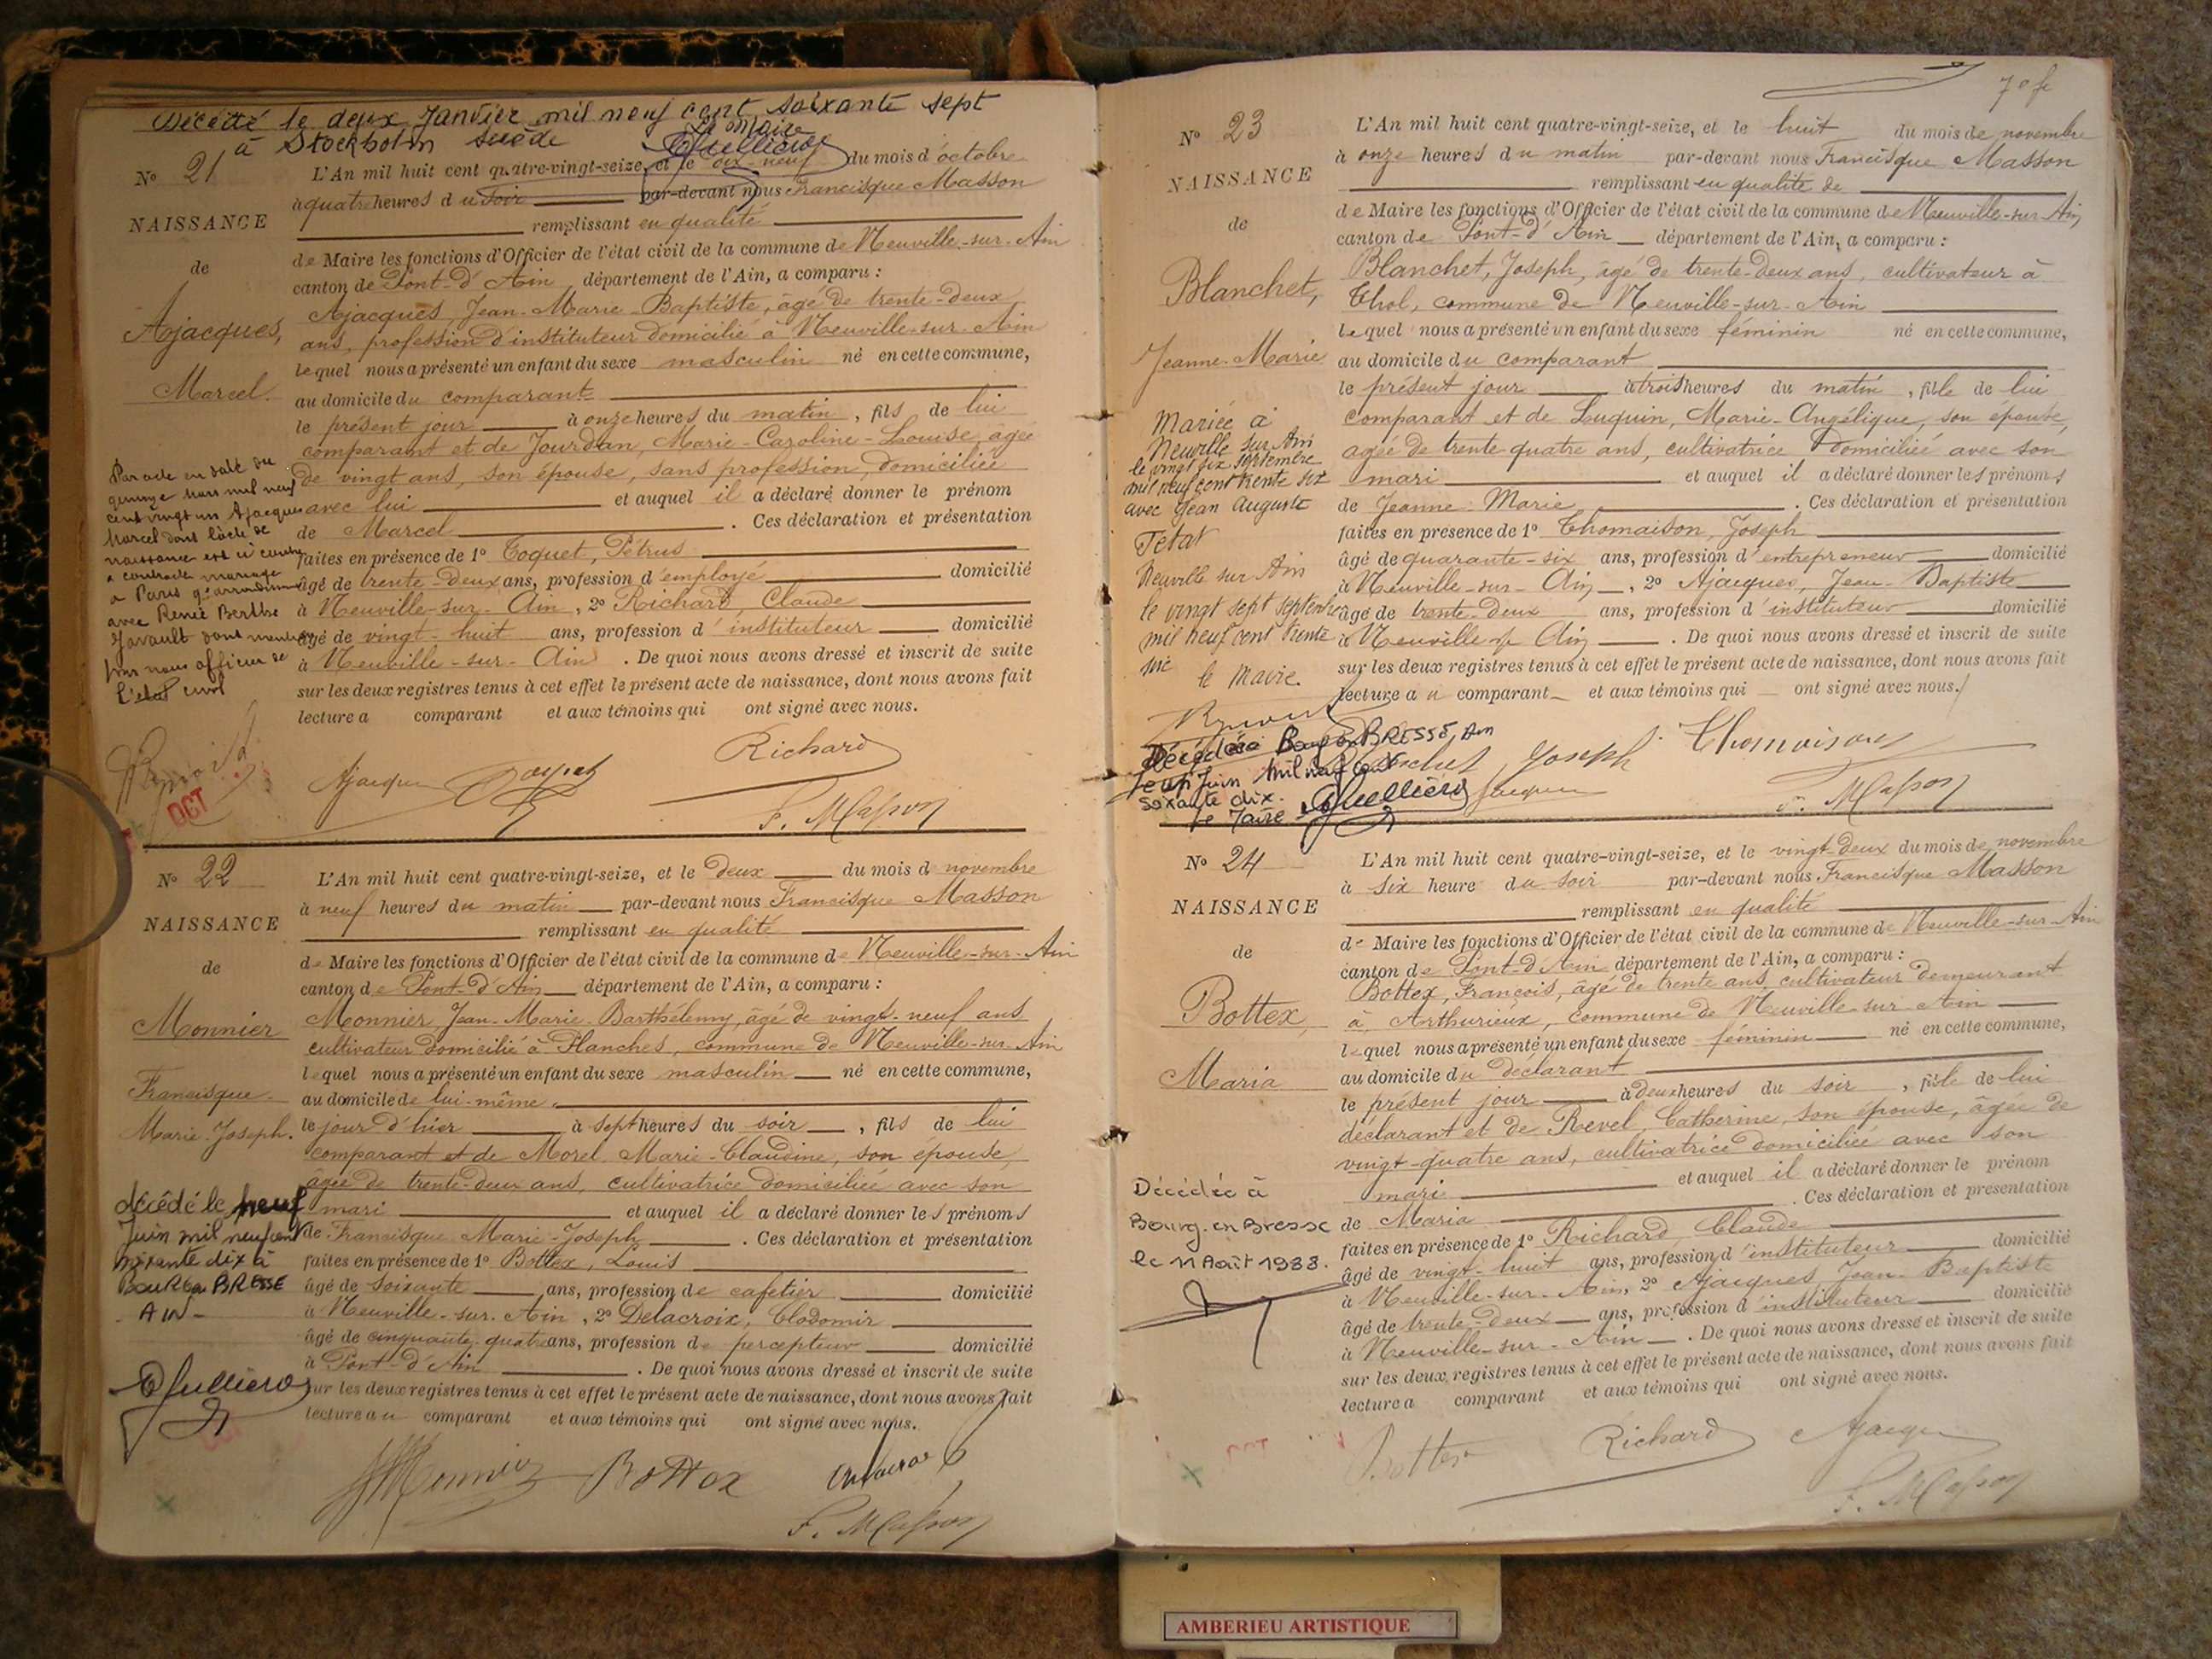 Décédé le deux Janvier mil neuf cent soixante sept
à Stockholm Suède Le Maire
N° 21
NAISSANCE
de
Ajacques,
Marcel.
L'An mil huit cent quatre-vingt-seize, et le dix-neuf du mois d'octobre
à quatre heures du soir par-devant nous Francisque Masson
remplissant en qualité
de Maire les fonctions d'Officier de l'état civil de la commune de Neuville-sur-Ain
canton de Pont-d'Ain département de l'Ain, a comparu :
Ajacques, Jean-Marie-Baptiste, âgé de trente-deux
ans, profession d'instituteur domicilié à Neuville-sur-Ain
lequel nous a présenté un enfant du sexe masculin né en cette commune,
au domicile du comparant
le présent jour à onze heures du matin, fils de lui
comparant et de Jourdan, Marie-Caroline-Louise, âgée
de vingt ans, son épouse, sans profession, domiciliée
avec lui et auquel il a déclaré donner le prénom
de Marcel. Ces déclaration et présentation
faites en présence de 1° Toquet, Pétrus
âgé de trente-deux ans, profession d'employé domicilié
à Neuville-sur-Ain, 2° Richard, Claude
âgé de vingt-huit ans, profession d'instituteur domicilié
à Neuville-sur-Ain. De quoi nous avons dressé et inscrit de suite
sur les deux registres tenus à cet effet le présent acte de naissance, dont nous avons fait
lecture a comparant et aux témoins qui ont signé avec nous.
Par acte en date du
quinze mars mil neuf
cent vingt un Ajacques
Marcel dont l'acte de
naissance est ci contre
a contracté mariage
à Paris 9e arrondissement
avec Renée Berthe
Javault dont mention
par nous officier de
l'état civil
Ajacques Toquet Richard
F. Masson
OCT
N° 22
NAISSANCE
de
Monnier
Francisque-
Marie-Joseph.
L'An mil huit cent quatre-vingt-seize, et le deux du mois d novembre
à neuf heures du matin par-devant nous Francisque Masson
remplissant en qualité
de Maire les fonctions d'Officier de l'état civil de la commune de Neuville-sur-Ain
canton de Pont-d'Ain département de l'Ain, a comparu :
Monnier Jean-Marie-Barthélemy, âgé de vingt-neuf ans
cultivateur domicilié à Planches, commune de Neuville-sur-Ain
lequel nous a présenté un enfant du sexe masculin né en cette commune,
au domicile de lui-même,
le jour d'hier à sept heures du soir, fils de lui
comparant et de Morel, Marie-Claudine, son épouse,
âgée de trente-deux ans, cultivatrice domiciliée avec son
mari et auquel il a déclaré donner les prénoms
de Francisque Marie-Joseph. Ces déclaration et présentation
faites en présence de 1° Bottex, Louis
âgé de soixante ans, profession de cafetier domicilié
à Neuville-sur-Ain, 2° Delacroix, Clodomir
âgé de cinquante-quatre ans, profession de percepteur domicilié
à Pont-d'Ain. De quoi nous avons dressé et inscrit de suite
sur les deux registres tenus à cet effet le présent acte de naissance, dont nous avons fait
lecture au comparant et aux témoins qui ont signé avec nous.
décédé le neuf
Juin mil neuf cent
soixante dix à
Bourg en BRESSE
- AIN -
Monnier Bottex
F. Masson
7e f
N° 23
NAISSANCE
de
Blanchet,
Jeanne-Marie
L'An mil huit cent quatre-vingt-seize, et le huit du mois de novembre
à onze heures du matin par-devant nous Francisque Masson
remplissant en qualité de
de Maire les fonctions d'Officier de l'état civil de la commune de Neuville-sur-Ain
canton de Pont-d'Ain département de l'Ain, a comparu :
Blanchet, Joseph, âgé de trente-deux ans, cultivateur à
Thol, commune de Neuville-sur-Ain
lequel nous a présenté un enfant du sexe féminin né en cette commune,
au domicile du comparant
le présent jour à trois heures du matin, fille de lui
comparant et de Luquin, Marie-Angélique, son épouse,
agée de trente quatre ans, cultivatrice, domiciliée avec son
mari et auquel il a déclaré donner les prénoms
de Jeanne-Marie. Ces déclaration et présentation
faites en présence de 1° Thomaison, Joseph
âgé de quarante-six ans, profession d'entrepreneur domicilié
à Neuville-sur-Ain, 2° Ajacques, Jean-Baptiste
âgé de trente-deux ans, profession d'instituteur domicilié
à Neuville s/ Ain. De quoi nous avons dressé et inscrit de suite
sur les deux registres tenus à cet effet le présent acte de naissance, dont nous avons fait
lecture a u comparant et aux témoins qui ont signé avec nous.
Mariée à
Neuville sur Ain
le vingt six septembre
mil neuf cent trente six
avec Jean Auguste
Tétat
Neuville sur Ain
le vingt sept septembre
mil neuf cent trente
six
le Maire.
Décédée Bourg en BRESSE, Ain
Juin mil neuf cent
soixante dix.
Le Maire
Blanchet Joseph Thomaison
Ajacques F. Masson
N° 24
NAISSANCE
de
Bottex,
Maria
L'An mil huit cent quatre-vingt-seize, et le vingt-deux du mois de novembre
à six heure du soir par-devant nous Francisque Masson
remplissant en qualité
de Maire les fonctions d'Officier de l'état civil de la commune de Neuville-sur-Ain
canton de Pont-d'Ain département de l'Ain, a comparu :
Bottex, François, âgé de trente ans, cultivateur demeurant
à Arthurieux, commune de Neuville-sur-Ain
lequel nous a présenté un enfant du sexe féminin né en cette commune,
au domicile du déclarant
le présent jour à deux heures du soir, fille de lui
déclarant et de Revel, Catherine, son épouse, âgée de
vingt-quatre ans, cultivatrice domiciliée avec son
mari et auquel il a déclaré donner le prénom
de Maria. Ces déclaration et présentation
faites en présence de 1° Richard, Claude
âgé de vingt-huit ans, profession d'instituteur domicilié
à Neuville-sur-Ain, 2° Ajacques, Jean-Baptiste
âgé de trente-deux ans, profession d'instituteur domicilié
à Neuville-sur-Ain. De quoi nous avons dressé et inscrit de suite
sur les deux registres tenus à cet effet le présent acte de naissance, dont nous avons fait
lecture a comparant et aux témoins qui ont signé avec nous.
Décédée à
Bourg-en-Bresse
le 11 Août 1988.
Bottex Richard Ajacques
F. Masson
AMBERIEU ARTISTIQUE